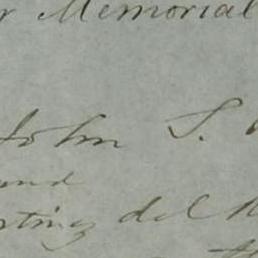 r Memorial
John S.
and
rting del